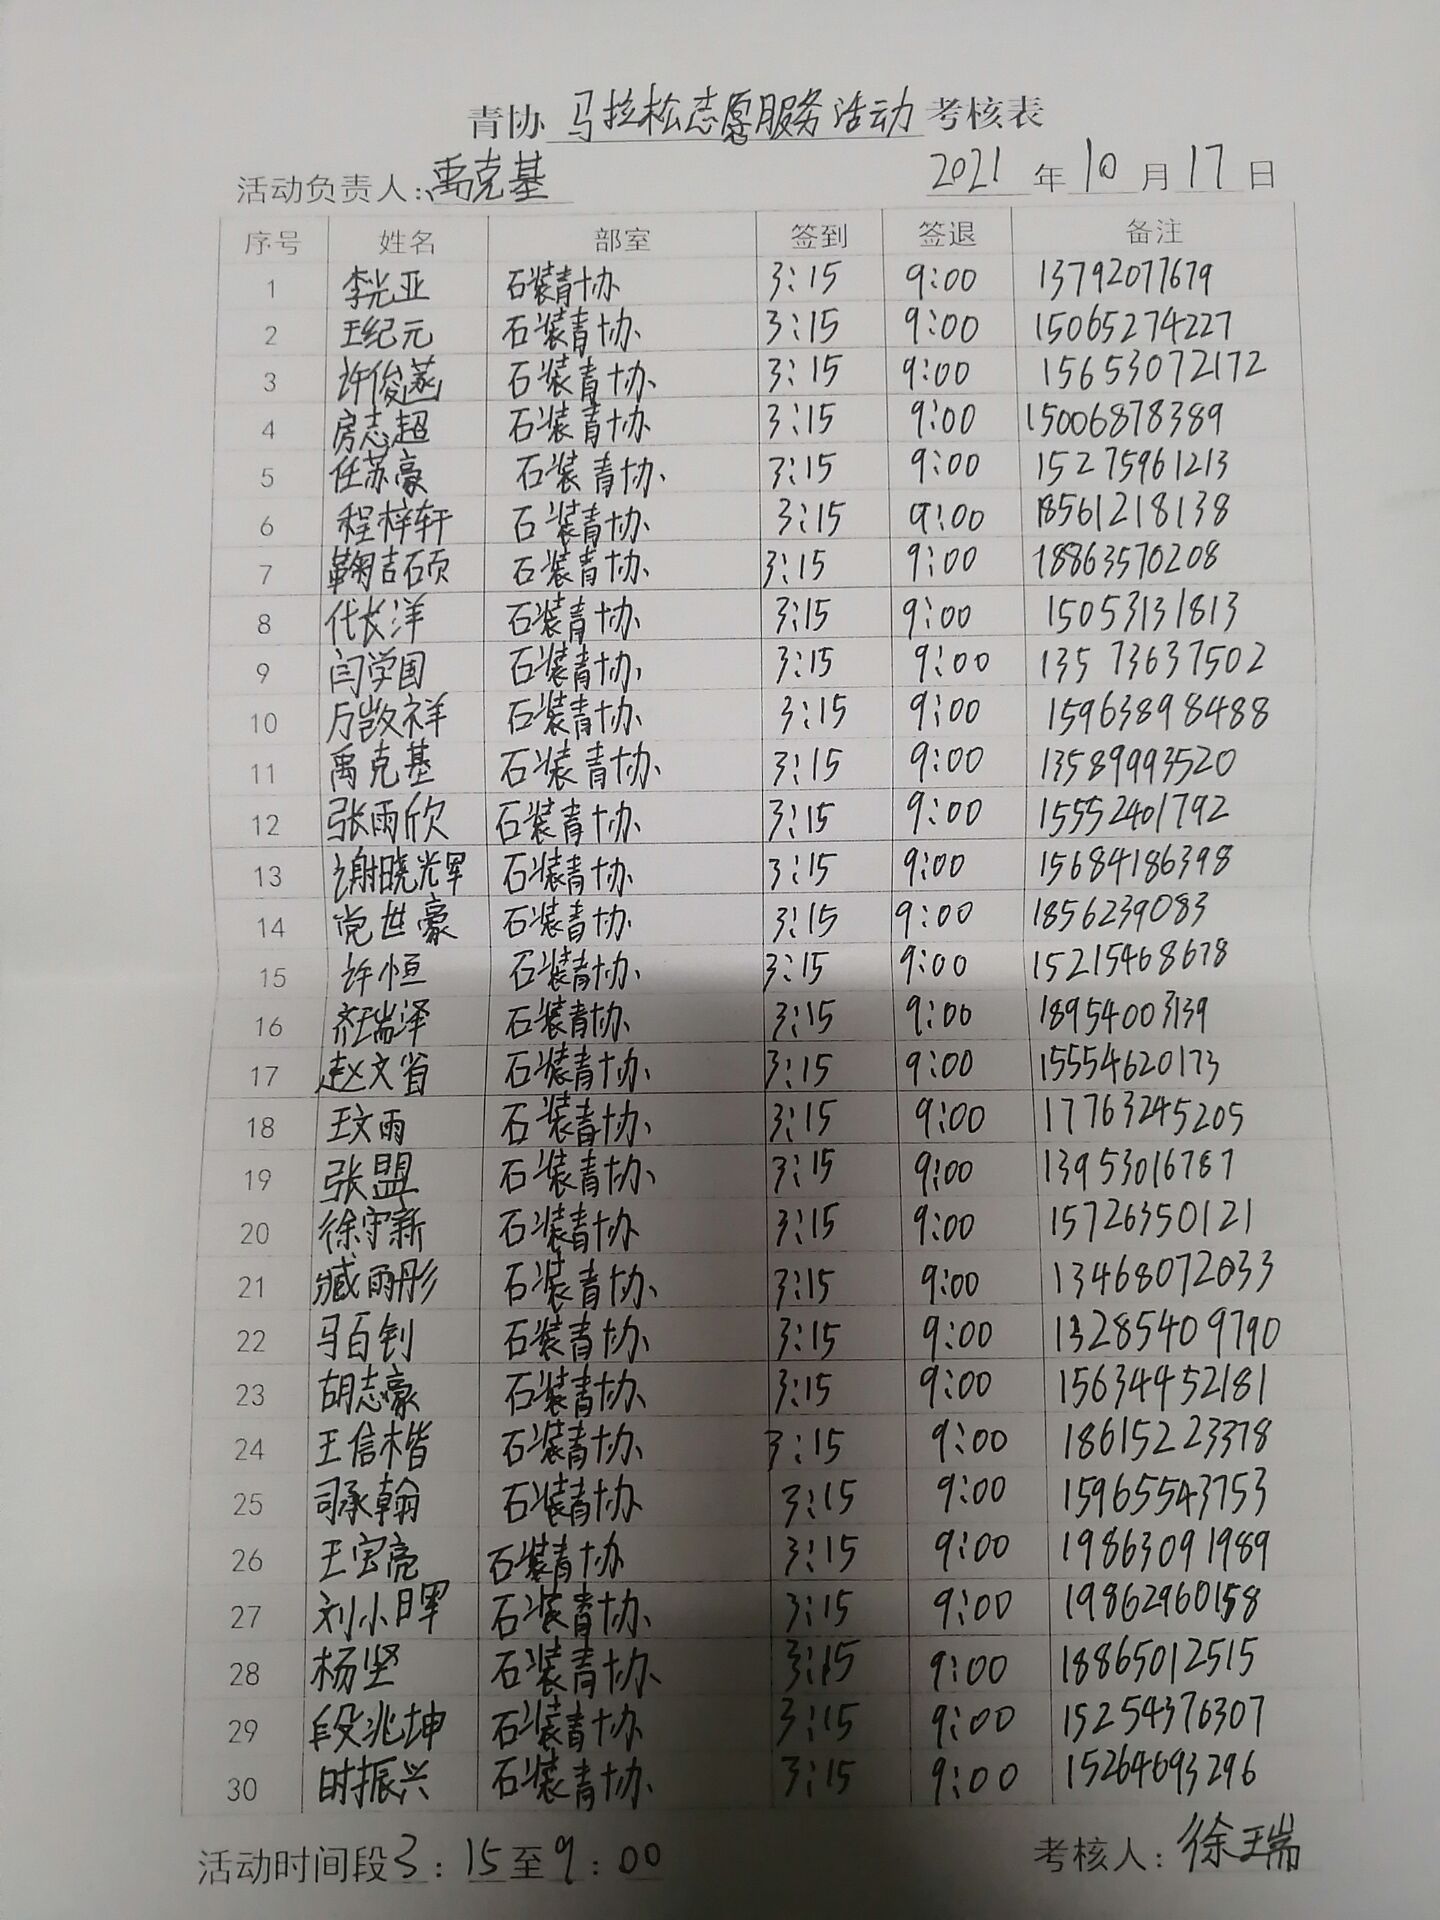 青协 马拉松志愿服务活动 考核表
活动负责人:禹克基 2021 年 10 月 17 日
序号 姓名 部室 签到 签退 备注
1 李光亚 石装青协 3:15 9:00 13792077679
2 王纪元 石装青协 3:15 9:00 15065274227
3 许俊菡 石装青协 3:15 9:00 15653072172
4 房志超 石装青协 3:15 9:00 15006878389
5 任苏豪 石装青协 3:15 9:00 15275961213
6 程梓轩 石装青协 3:15 9:00 18561218138
7 鞠吉硕 石装青协 3:15 9:00 18863570208
8 代长洋 石装青协 3:15 9:00 15053131813
9 闫学国 石装青协 3:15 9:00 13573637502
10 万凯祥 石装青协 3:15 9:00 15963898488
11 禹克基 石装青协 3:15 9:00 13589993520
12 张雨欣 石装青协 3:15 9:00 15552401792
13 谢晓辉 石装青协 3:15 9:00 15684186398
14 党世豪 石装青协 3:15 9:00 1856239083
15 许恒 石装青协 3:15 9:00 15215468678
16 齐瑞泽 石装青协 3:15 9:00 18954003139
17 赵文省 石装青协 3:15 9:00 15554620173
18 王文雨 石装青协 3:15 9:00 17763245205
19 张盟 石装青协 3:15 9:00 13953016787
20 徐守新 石装青协 3:15 9:00 15726350121
21 臧雨彤 石装青协 3:15 9:00 13468072033
22 马百钊 石装青协 3:15 9:00 13285409790
23 胡志豪 石装青协 3:15 9:00 15634452181
24 王信楷 石装青协 3:15 9:00 18615223378
25 司承翰 石装青协 3:15 9:00 15965543753
26 王宝亮 石装青协 3:15 9:00 19863091989
27 刘小晖 石装青协 3:15 9:00 19862960158
28 杨坚 石装青协 3:15 9:00 18865012515
29 段兆坤 石装青协 3:15 9:00 15254376307
30 时振兴 石装青协 3:15 9:00 15264693296
活动时间段 3:15至9:00 考核人:徐瑞